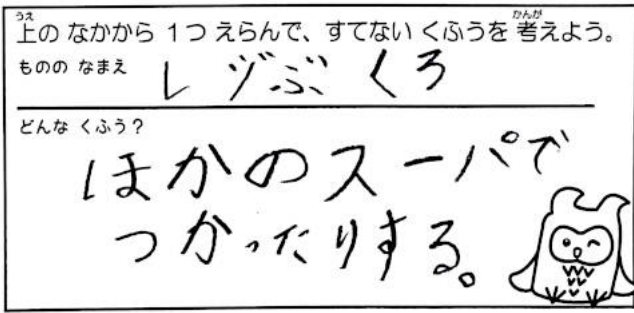 上の なかから 1つ えらんで、すてない くふうを 考えよう。
ものの なまえ
レヅぶくろ
どんな くふう？
ほかのスーパで
つかったりする。